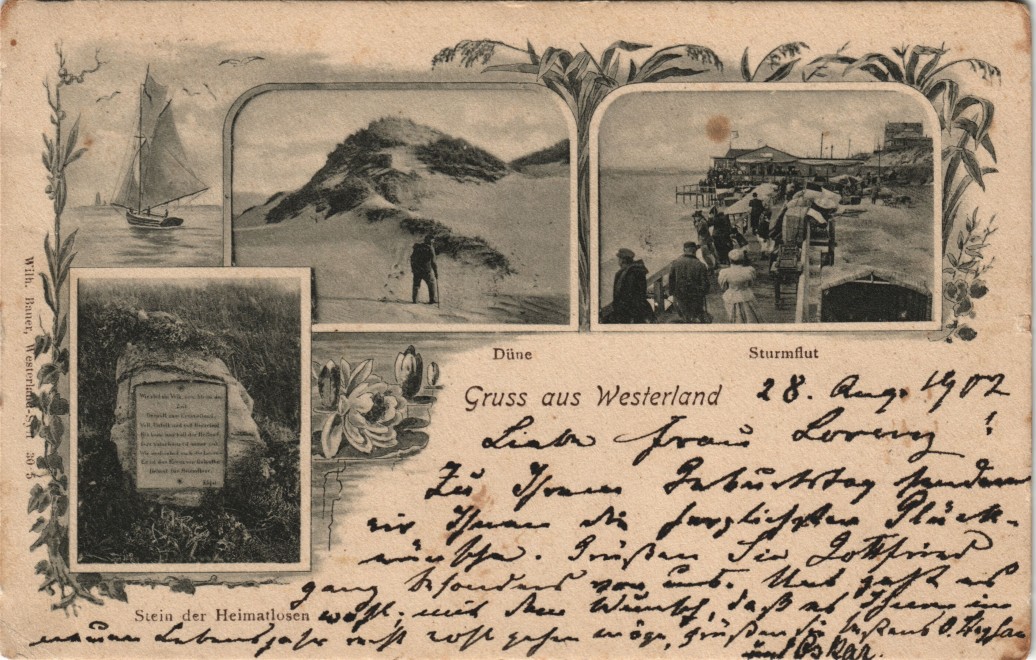 Düne
Sturmflut
Gruss aus Westerland
28. Aug. 1902
Liebe Frau Lorenz!
Zu Ihrem Geburtstag senden
wir Ihnen die herzlichsten Glück-
wünsche. Grüßen Sie Gottfried
ganz besonders von uns. Uns geht es
wohl; mit dem Wunsch, daß es Ihnen im
neuen Lebensjahr recht wohl gehen möge, grüßen Sie bestens
und Oskar.
Stein der Heimatlosen
Wilh. Bauer, Westerland-Sylt